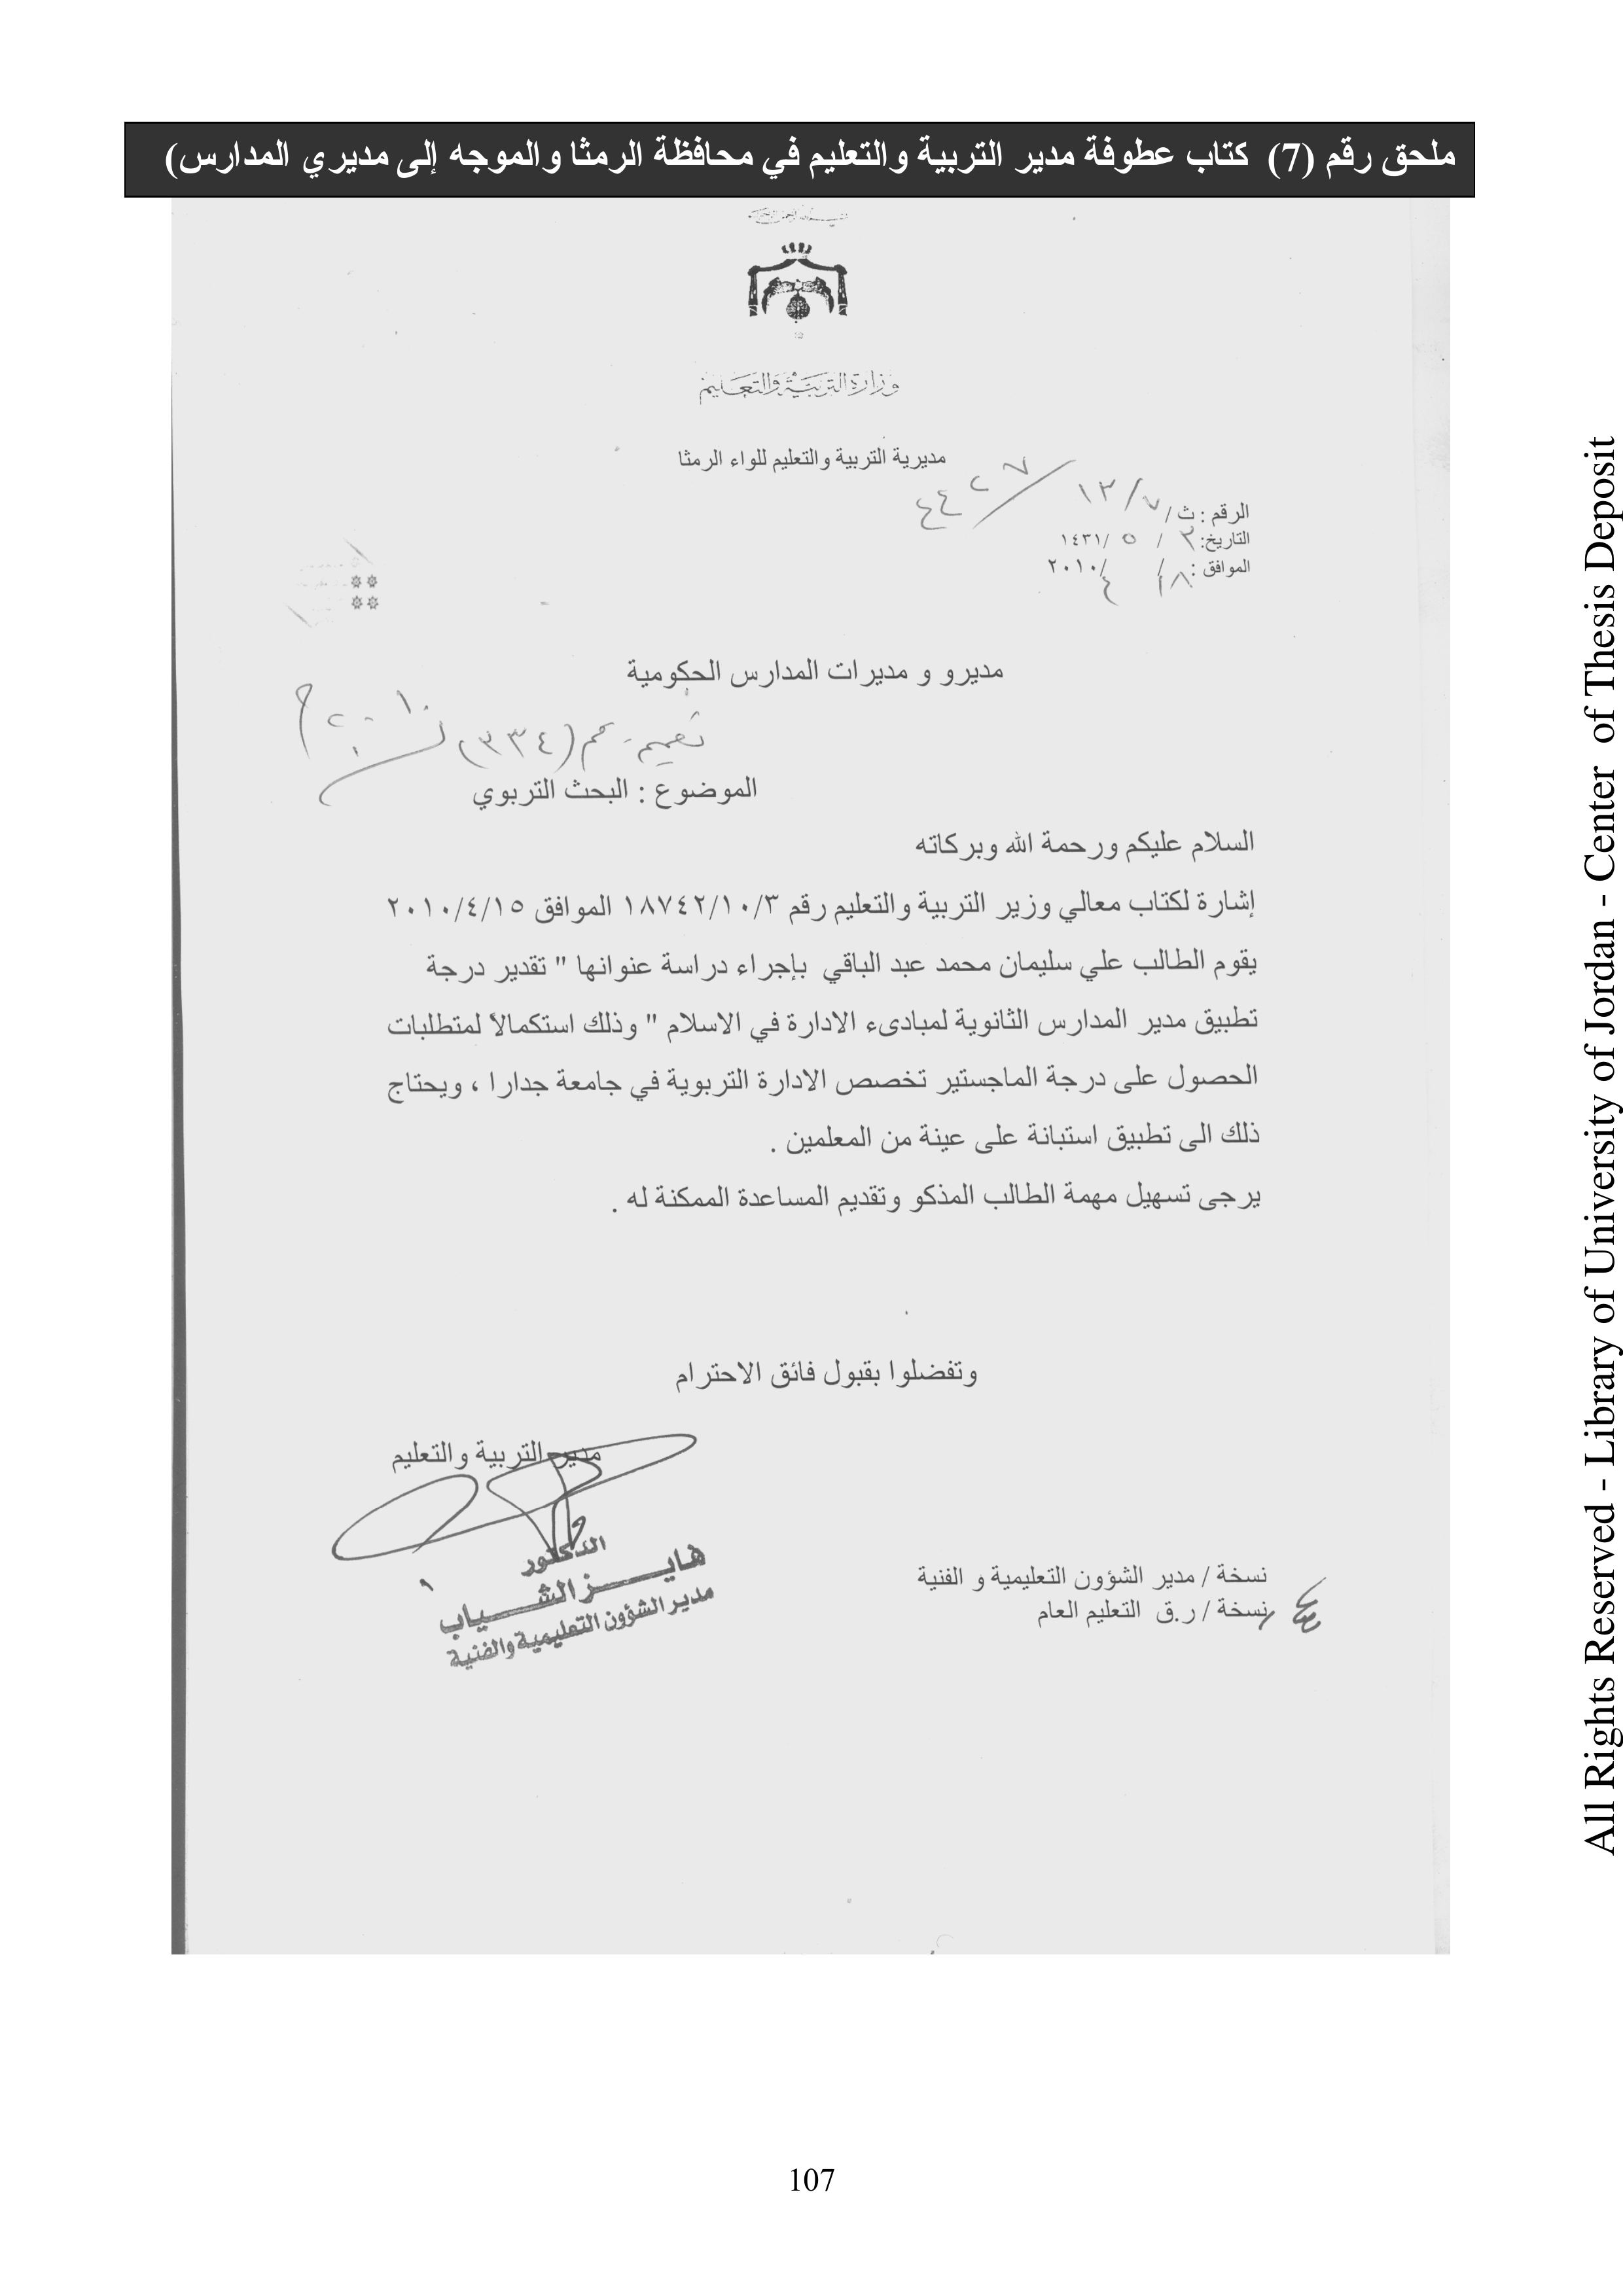 ملحق رقم (7) كتاب عطوفة مدير التربية والتعليم في محافظة الرمثا والموجه إلى مديري المدارس)
وزارة التربية والتعليم
مديرية التربية والتعليم للواء الرمثا
الرقم : ث /
التاريخ: ٣ / ٥ /١٤٣١
الموافق : ١٨ / ٤ /٢٠١٠
مديرو و مديرات المدارس الحكومية
تعميم (٣٣٤)
الموضوع : البحث التربوي
السلام عليكم ورحمة الله وبركاته
إشارة لكتاب معالي وزير التربية والتعليم رقم ١٨٧٤٢/١٠/٣ الموافق ٢٠١٠/٤/١٥
يقوم الطالب علي سليمان محمد عبد الباقي بإجراء دراسة عنوانها " تقدير درجة
تطبيق مدير المدارس الثانوية لمبادىء الادارة في الاسلام " وذلك استكمالاً لمتطلبات
الحصول على درجة الماجستير تخصص الادارة التربوية في جامعة جدارا ، ويحتاج
ذلك الى تطبيق استبانة على عينة من المعلمين .
يرجى تسهيل مهمة الطالب المذكو وتقديم المساعدة الممكنة له .
وتفضلوا بقبول فائق الاحترام
مدير التربية والتعليم
الدكتور
هايز الشياب
مدير الشؤون التعليمية والفنية
نسخة / مدير الشؤون التعليمية و الفنية
نسخة / ر.ق التعليم العام
107
All Rights Reserved - Library of University of Jordan - Center of Thesis Deposit